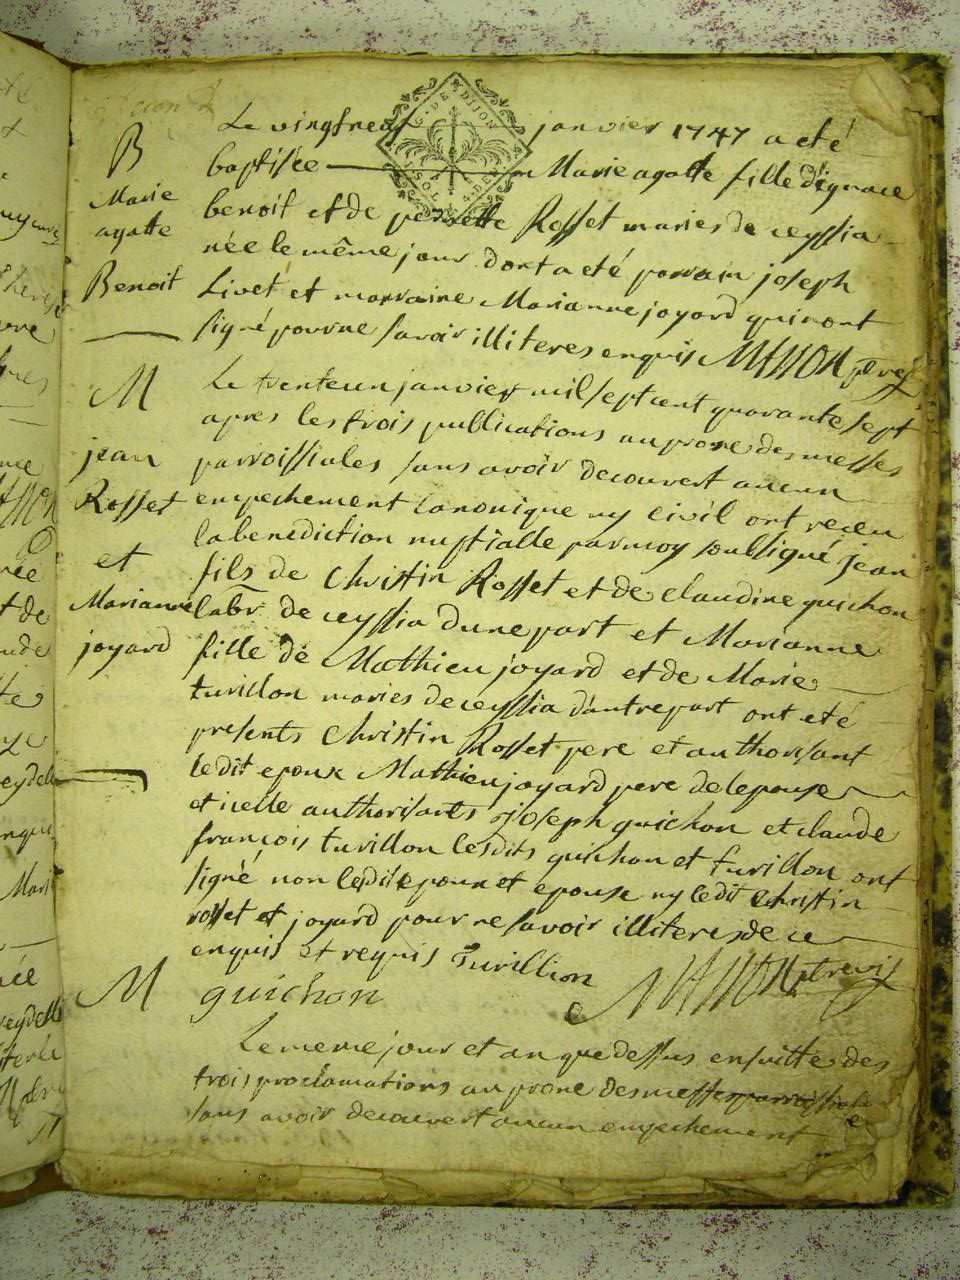 G. DE DIJON
1 SOL 4. DE.
Le vingtneuf janvier 1747 a eté
B
baptisée Marie agatte fille dignace
Marie
benoit et de perrette Rosset mariés de ceyssia
agatte
née le même jour dont a eté parrain joseph
Benoit
Livet et marraine Marianne joyard qui nont
signé pour ne savoir illiteres enquis
M
Le trenteun janvier mil sept cent quarante sept
apres les trois publications au prone des messes
jean
parroissiales sans avoir decouvert aucun
Rosset
empechement canonique ny civil ont receu
la benediction nuptialle par moy soussigné jean
et
fils de Christin Rosset et de claudine guichon
Marianne
labr de ceyssia dune part et Marianne
joyard
fille de Mathieu joyard et de Marie
turillon mariés de ceyssia dautre part ont eté
presents Christin Rosset pere et authorisant
ledit epoux Mathieu joyard pere de lepouse
et icelle authorisants joseph guichon et claude
françois turillon lesdits guichon et turillon ont
signé non lesdits epoux et epouse ny ledit Christin
rosset et joyard pour ne savoir illiteres de ce
enquis et requis Turillion
guichon
M
Le meme jour et an que dessus ensuitte des
trois proclamations au prone des messes parroissiales
sans avoir decouvert aucun empechement